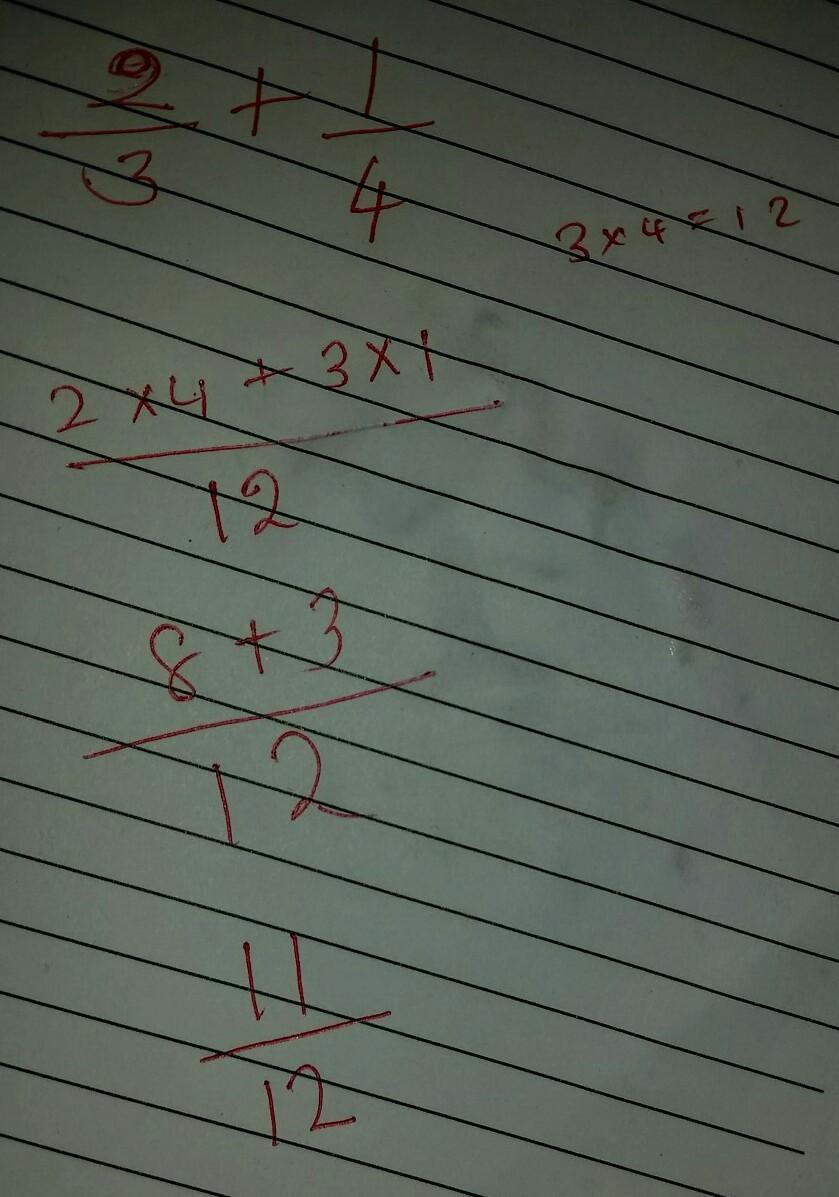 2/3 + 1/4
3 x 4 = 12
2 x 4 + 3 x 1
12
8 + 3
12
11
12